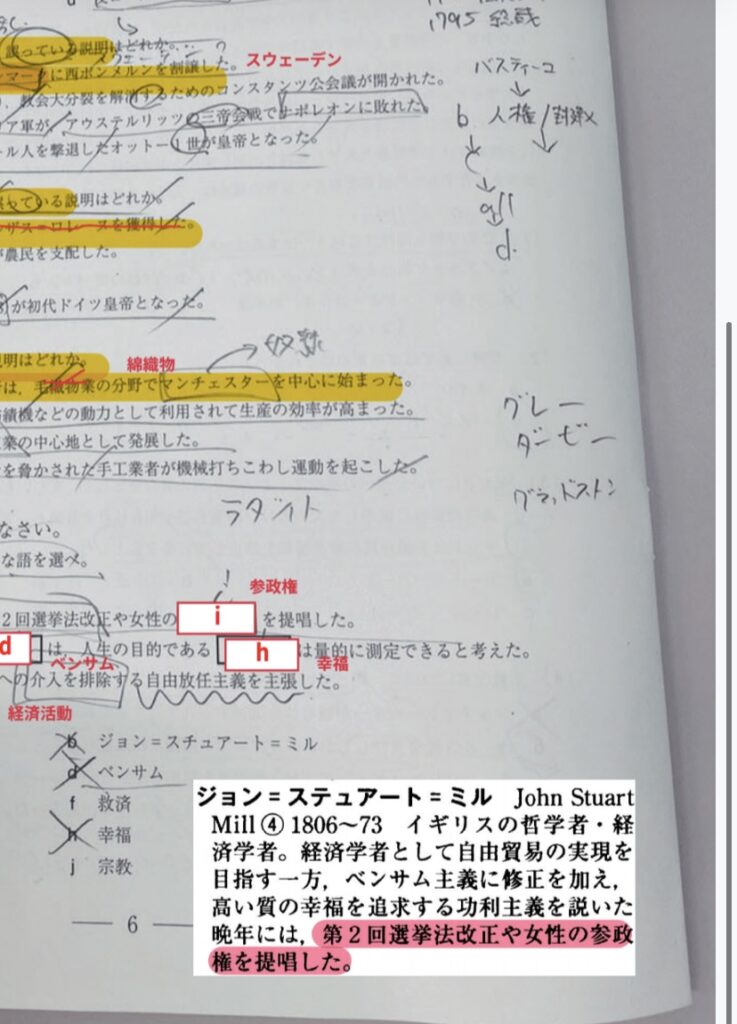 1795 総裁
誤っている説明はどれか。
スウェーデン
に西ポンメルンを割譲した。
バスティーユ
教会大分裂を解消するためのコンスタンツ公会議が開かれた。
ア軍が、アウステルリッツの三帝会戦でナポレオンに敗れた。
b 人権/封建
ール人を撃退したオットー1世が皇帝となった。
c
d.
っている説明はどれか。
ザス=ロレーヌを獲得した。
が農民を支配した。
が初代ドイツ皇帝となった。
説明はどれか。
綿織物
は、毛織物業の分野でマンチェスターを中心に始まった。
績機などの動力として利用されて生産の効率が高まった。
グレー
業の中心地として発展した。
ダービー
を脅かされた手工業者が機械打ちこわし運動を起こした。
グラッドストン
ラダイト
なさい。
な語を選べ。
参政権
2回選挙法改正や女性の i を提唱した。
d は、人生の目的である h は量的に測定できると考えた。
ベンサム 幸福
への介入を排除する自由放任主義を主張した。
経済活動
b ジョン=スチュアート=ミル
d ベンサム
f 救済
h 幸福
j 宗教
6
ジョン=ステュアート=ミル John Stuart
Mill④ 1806〜73 イギリスの哲学者・経
済学者。経済学者として自由貿易の実現を
目指す一方，ベンサム主義に修正を加え，
高い質の幸福を追求する功利主義を説いた
晩年には，第2回選挙法改正や女性の参政
権を提唱した。